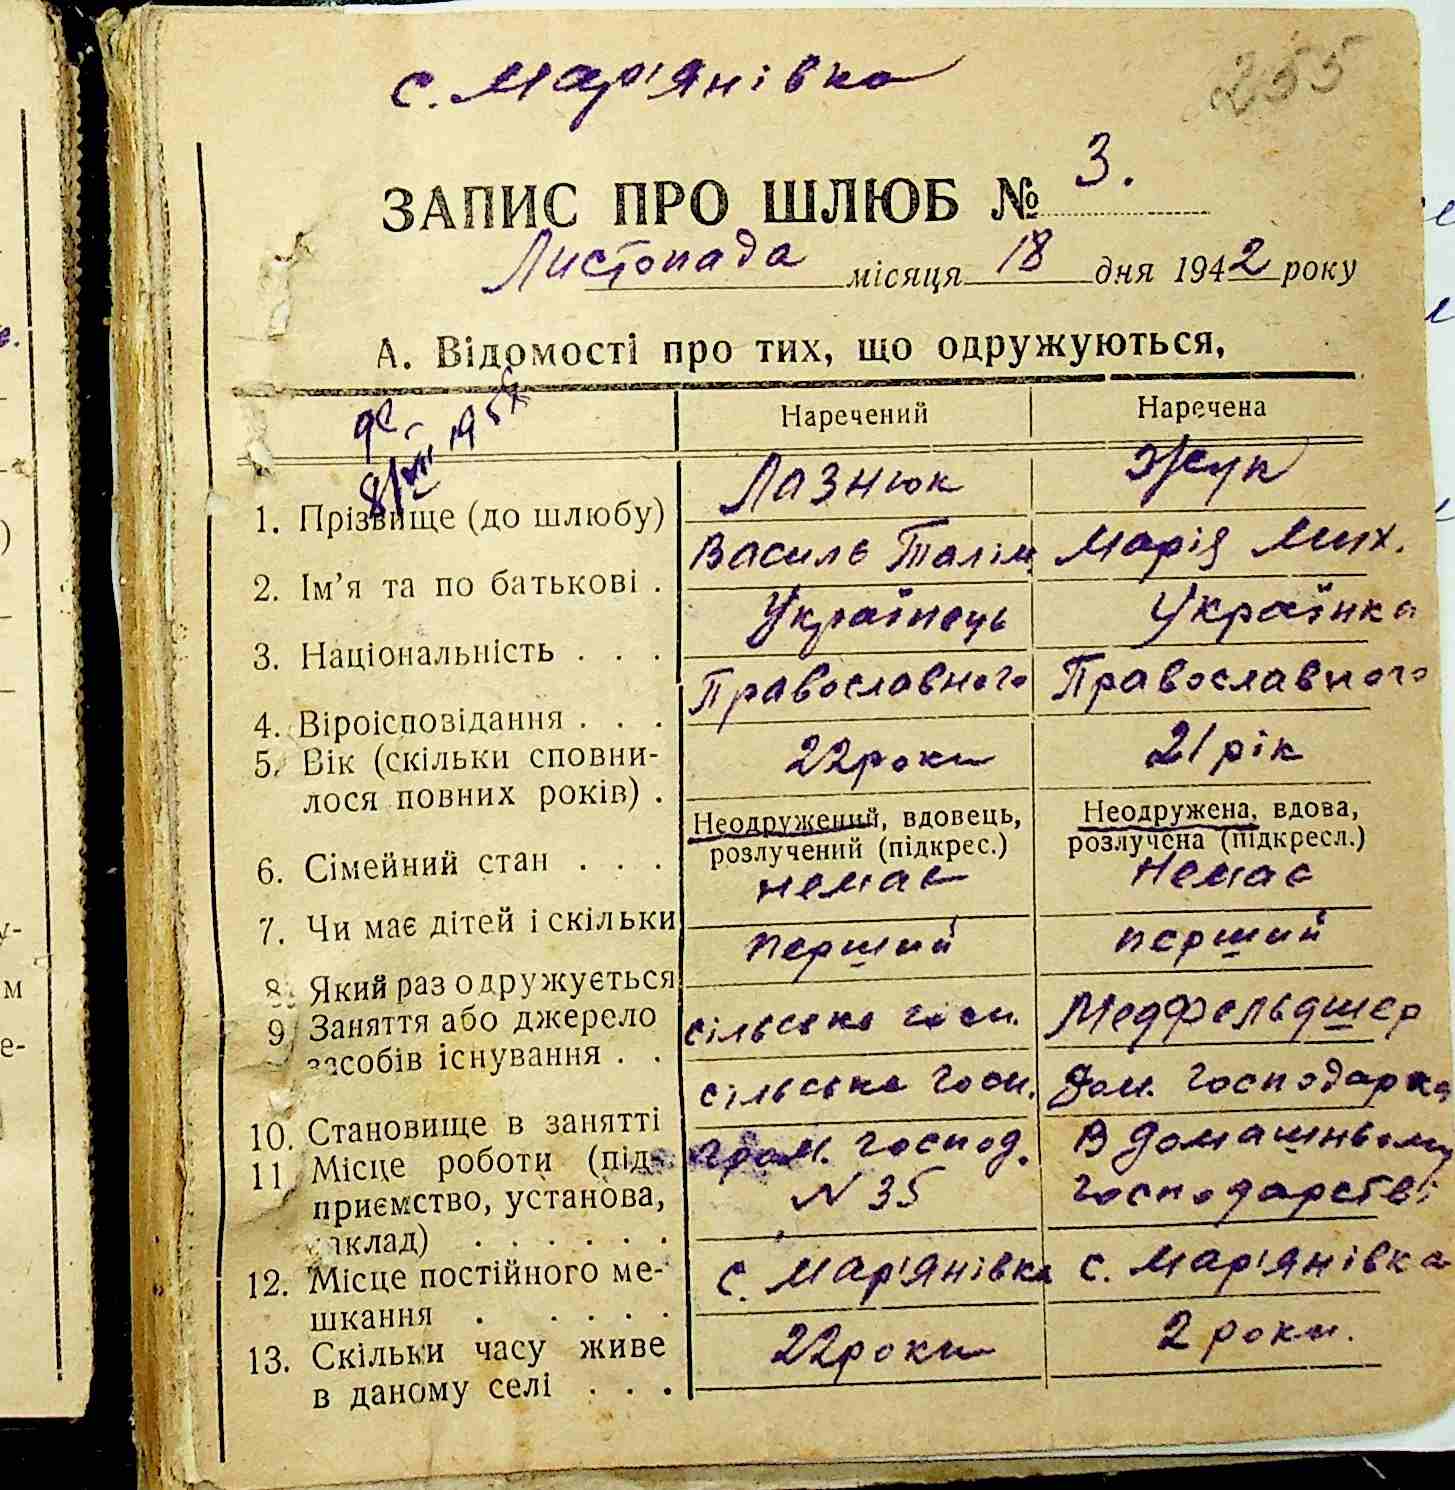 с. Мар'янівка
255
ЗАПИС ПРО ШЛЮБ № 3.
Листопада місяця 18 дня 1942 року
А. Відомості про тих, що одружуються,
Наречений Наречена
1. Прізвище (до шлюбу) Лазнюк Жук
2. Ім'я та по батькові . Василь Марія Мих.
3. Національність . . . Українець Українка
4. Віроісповідання . . . Православного Православного
5. Вік (скільки сповни-
лося повних років) . 22 роки 21 рік
Неодружений, вдовець, Неодружена, вдова,
6. Сімейний стан . . . розлучений (підкрес.) розлучена (підкресл.)
7. Чи має дітей і скільки немає Немає
8. Який раз одружується перший перший
9. Заняття або джерело
засобів існування . . сільське госп. Медфельдшер
10. Становище в занятті сільське госп. Дом. господарка
11. Місце роботи (під- гром. господ. В домашньому
приємство, установа, N 35 господарстві
заклад) . . . . . .
12. Місце постійного ме-
шкання . . . . . с. Мар'янівка с. Мар'янівка
13. Скільки часу живе
в даному селі . . . 22 роки 2 роки.